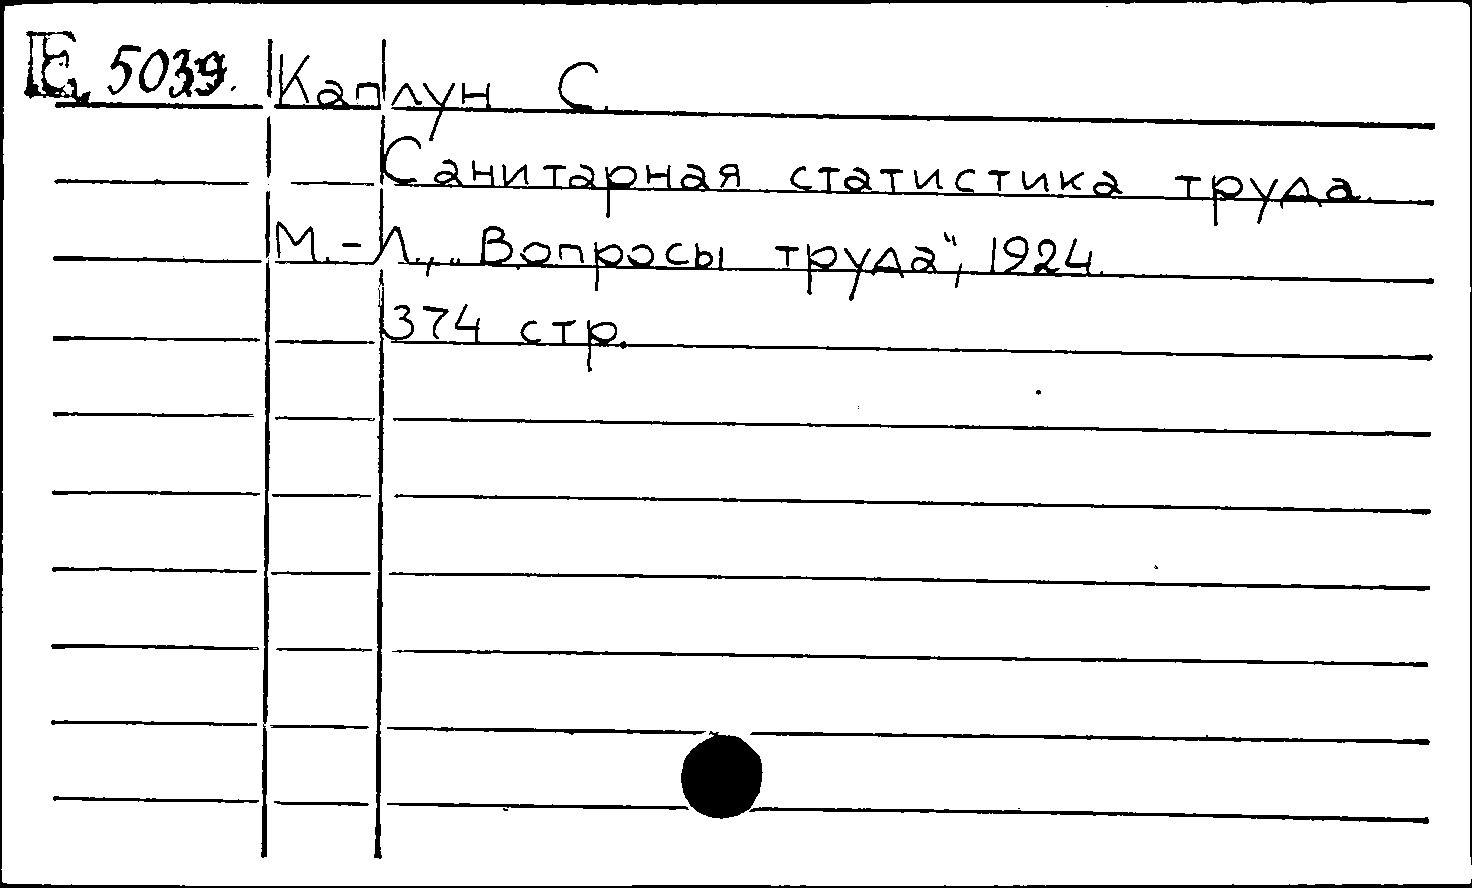 E. 5039. Каплун С.
Санитарная статистика труда.
М.-Л., „Вопросы труда“, 1924.
374 стр.